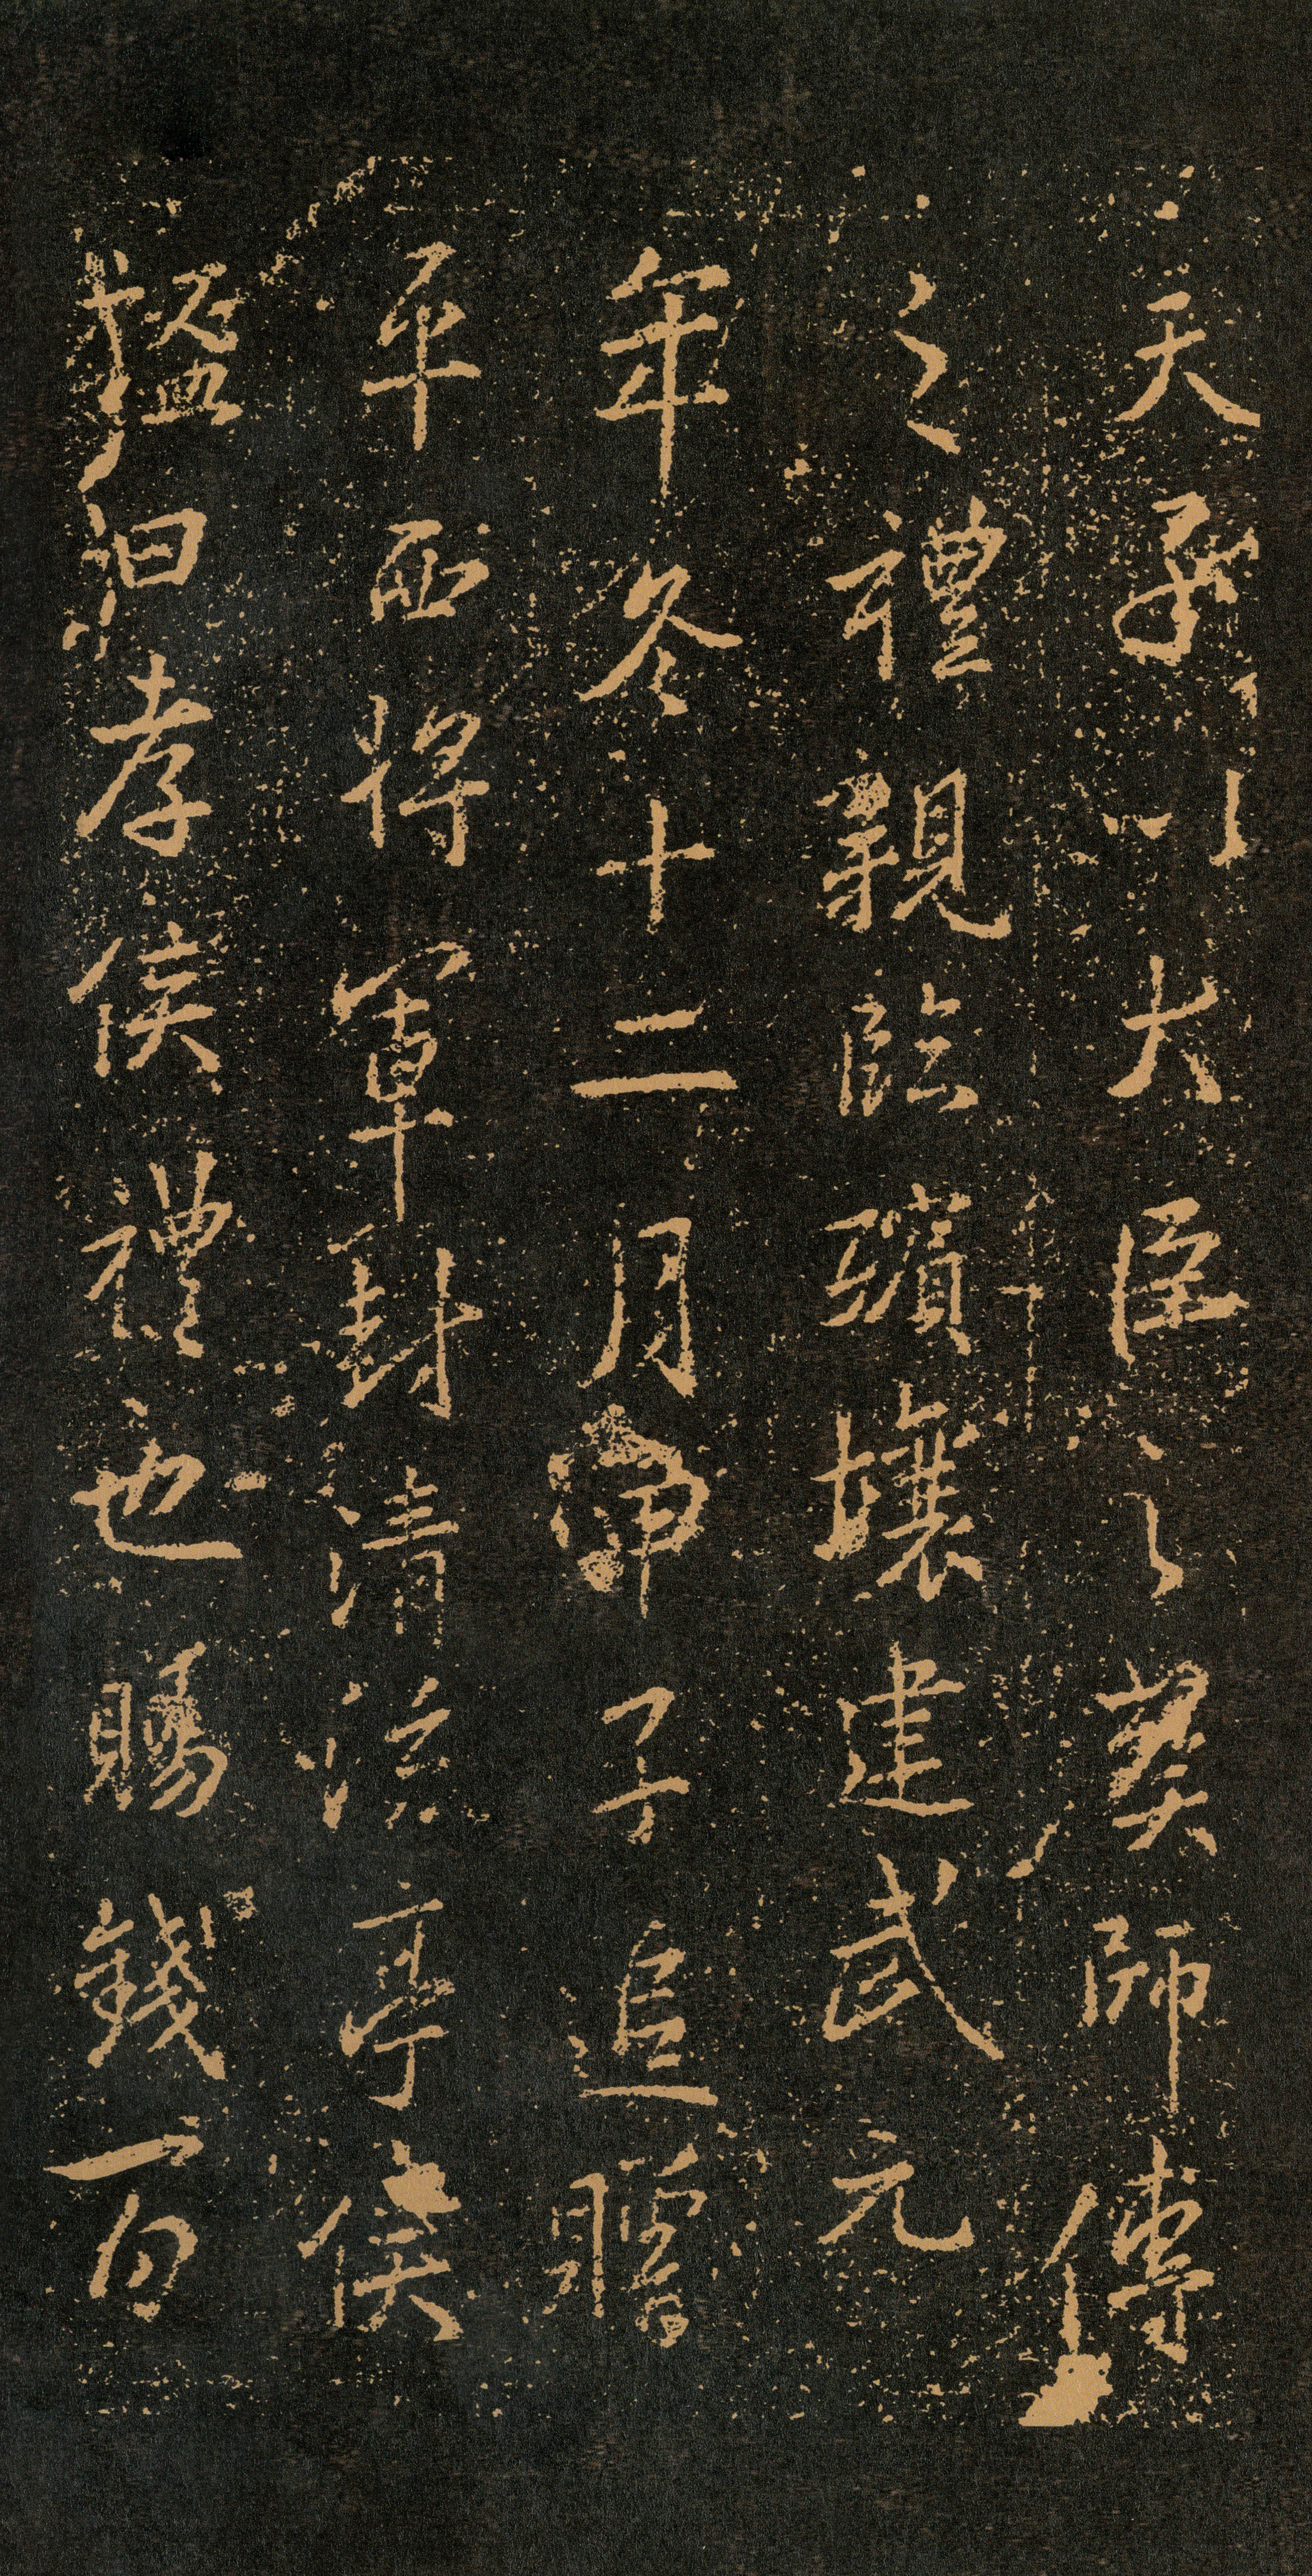 天子以大臣之葬師傅
之禮親臨殯壤建武元
年冬十二月甲子追贈
平西將軍封清流亭侯
謚曰孝侯禮也賜錢百